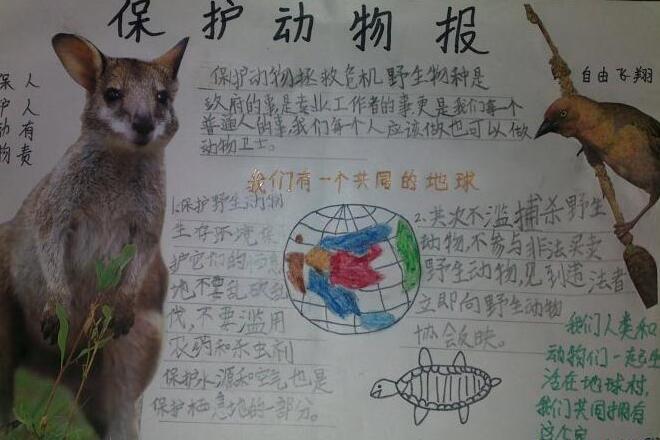 保护动物报
保护动物人人有责
保护动物拯救危机野生物种是
政府的事是专业工作者的事更是我们每一个
普通人的事,我们每个人应该做也可以做
动物卫士。
自由飞翔
我们有一个共同的地球
1.保护野生动物
生存环境保
护它们的
地不要乱砍乱
伐,不要滥用
农药和杀虫剂
保护水源和空气也是
保护栖息地的一部分。
2.共次不滥捕杀野生
动物,不参与非法买卖
野生动物,见到违法者
立即向野生动物
协会反映。
我们人类和
动物们一起生
活在地球村,
我们共同拥有
这个家